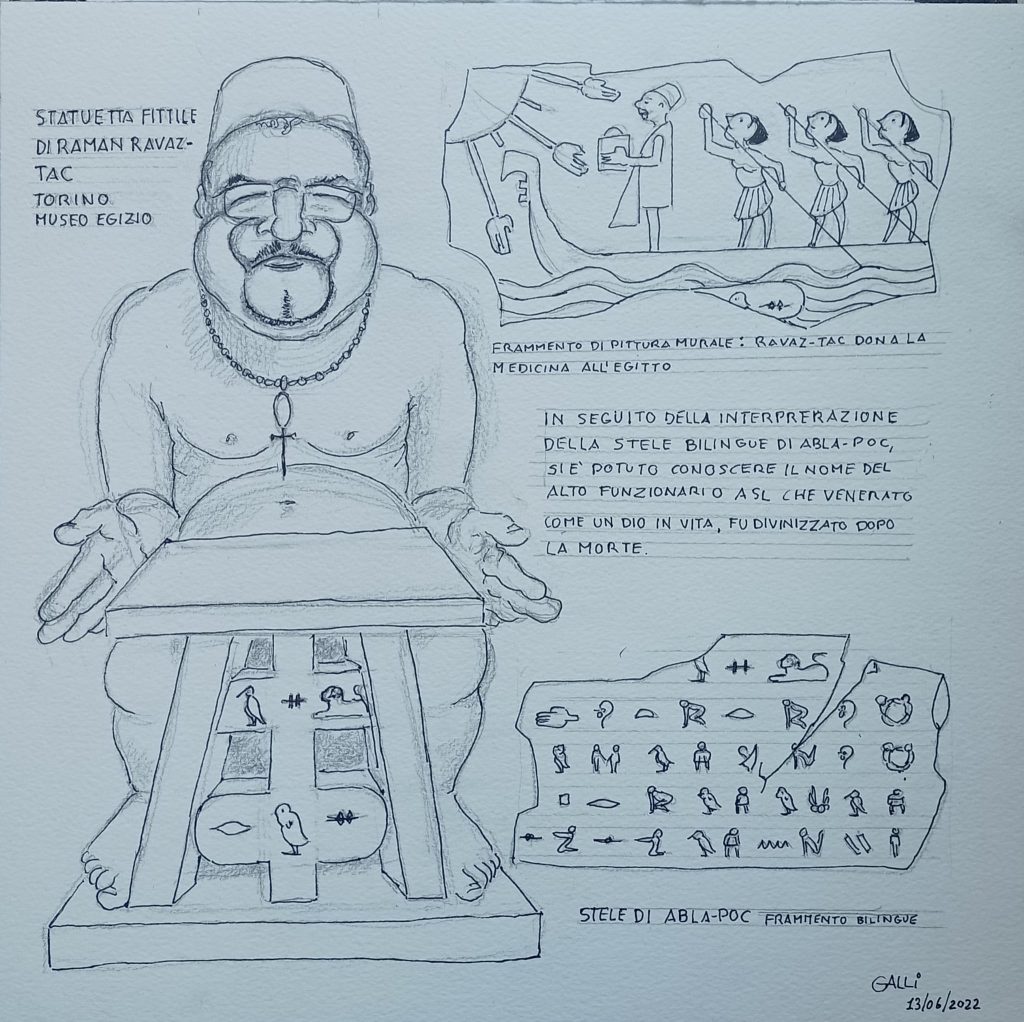 STATUETTA FITTILE
DI RAMAN RAVAZ-
TAC
TORINO
MUSEO EGIZIO
FRAMMENTO DI PITTURA MURALE: RAVAZ-TAC DONA LA
MEDICINA ALL'EGITTO
IN SEGUITO DELLA INTERPRERAZIONE
DELLA STELE BILINGUE DI ABLA-POC,
SI E' POTUTO CONOSCERE IL NOME DEL
ALTO FUNZIONARIO ASL CHE VENERATO
COME UN DIO IN VITA, FU DIVINIZZATO DOPO
LA MORTE.
STELE DI ABLA-POC FRAMMENTO BILINGUE
GALLI
13/06/2022